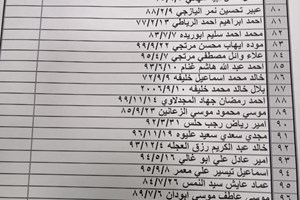 ٨٠ عبير تحسين نمر اليازجي ٨٨/٢/٩
٨١ احمد ابراهيم احمد الرياطي ٧٧/٢/١٣
٨٢ محمد احمد سليم ابوريده ٨٣/٧/٧
٨٣ موده ايهاب محسن مرتجي ٩٩/٩/٢٢
٨٤ علاء وائل مصطفي مرتجي ٩٤/٩/٥
٨٥ احمد عبد الله هاشم غنام ٩٣/٦/١٠
٨٦ خالد محمد اسماعيل خليفه ٧٢/٩/٩
٨٧ بلال خالد محمد خليفه ٢٠٠٦/٩/١٠
٨٨ احمد رمضان جهاد المجدلاوي ٩٩/١١/١٤
٨٩ موسي محمود موسي الزعانين ٨٥/٩/٢٣
٩٠ امير رياض رجب حلس ٩٢/٣/٣١
٩١ مجدي سعدي سعيد عليوه ٩٦/١١/١٩
٩٢ خالد عبد الكريم رزق العجله ٩٣/١٢/٤
٩٣ امير عادل علي ابو غالي ٩٤/٥/١٦
٩٤ اسماعيل تيسير علي معمر ٩٥/٩/٨
٩٥ عماد عايش سيد النمس ٨٤/٧/٢٦
٩٦ موسي عاطف موسي ابودان ٨٩/٧/٦